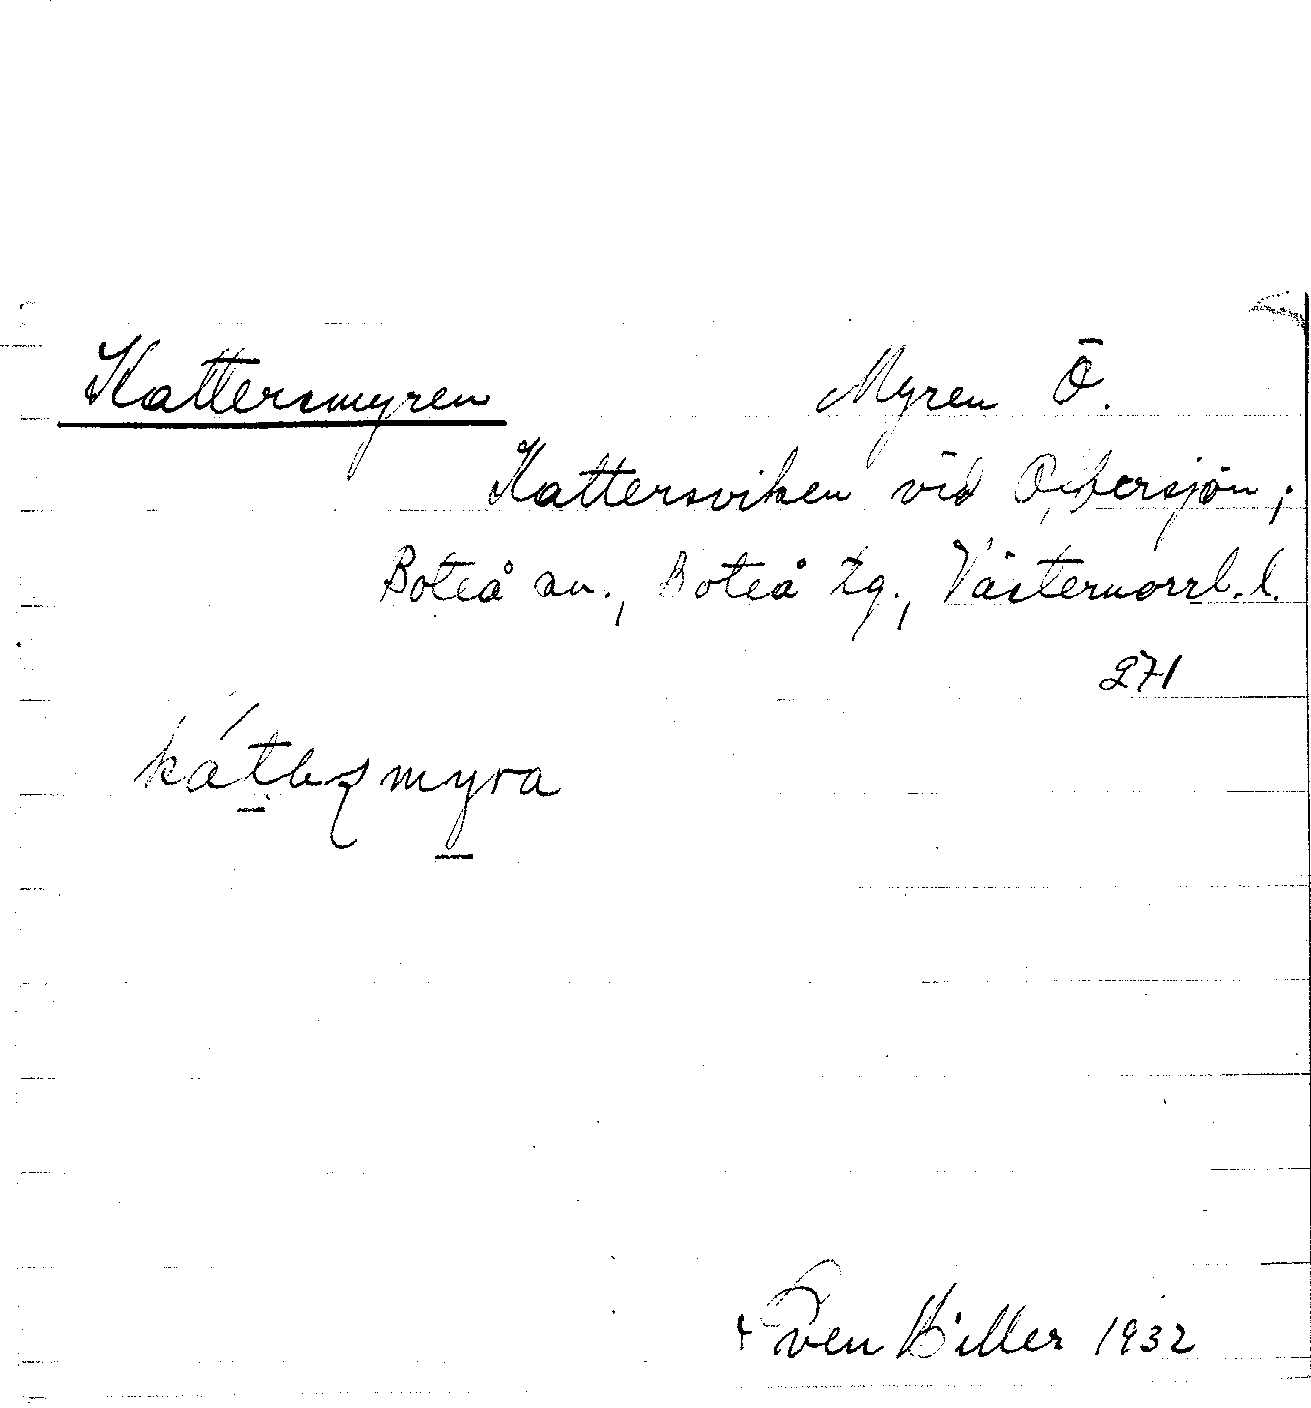 Kattersmyren Myren Ö.
Kattersviken vid Oxbersjön;
Boteå sn., Boteå tg., Västernorrl.l.
271
myra
Sven Hiller 1932